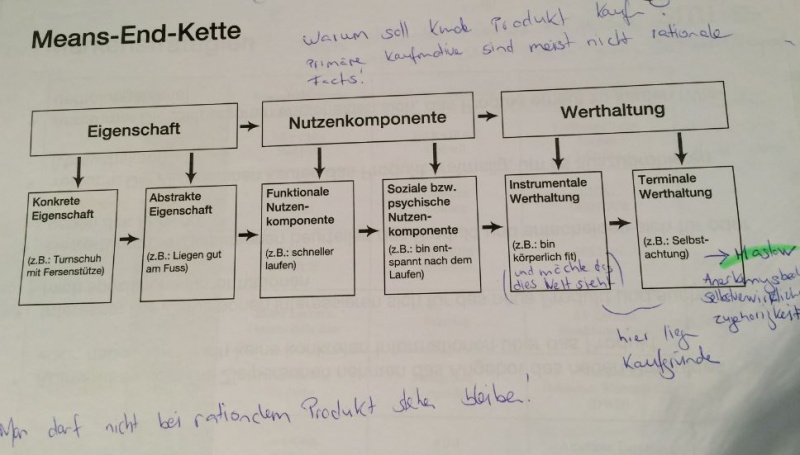 Means-End-Kette
Warum soll Kunde Produkt kaufen?
primäre Kaufmotive sind meist nicht rationale
Facts!
Eigenschaft
Nutzenkomponente
Werthaltung
Konkrete
Eigenschaft
(z.B.: Turnschuh
mit Fersenstütze)
Abstrakte
Eigenschaft
(z.B.: Liegen gut
am Fuss)
Funktionale
Nutzen-
komponente
(z.B.: schneller
laufen)
Soziale bzw.
psychische
Nutzen-
komponente
(z.B.: bin ent-
spannt nach dem
Laufen)
Instrumentale
Werthaltung
(z.B.: bin
körperlich fit)
und möchte das
dies Welt sieht
Terminale
Werthaltung
(z.B.: Selbst-
achtung)
→ Maslow
Anerkennungsbed
selbstverwirklich
zugehörigkeit
hier liegen
Kaufgründe
Man darf nicht bei rationalem Produkt stehen bleiben!